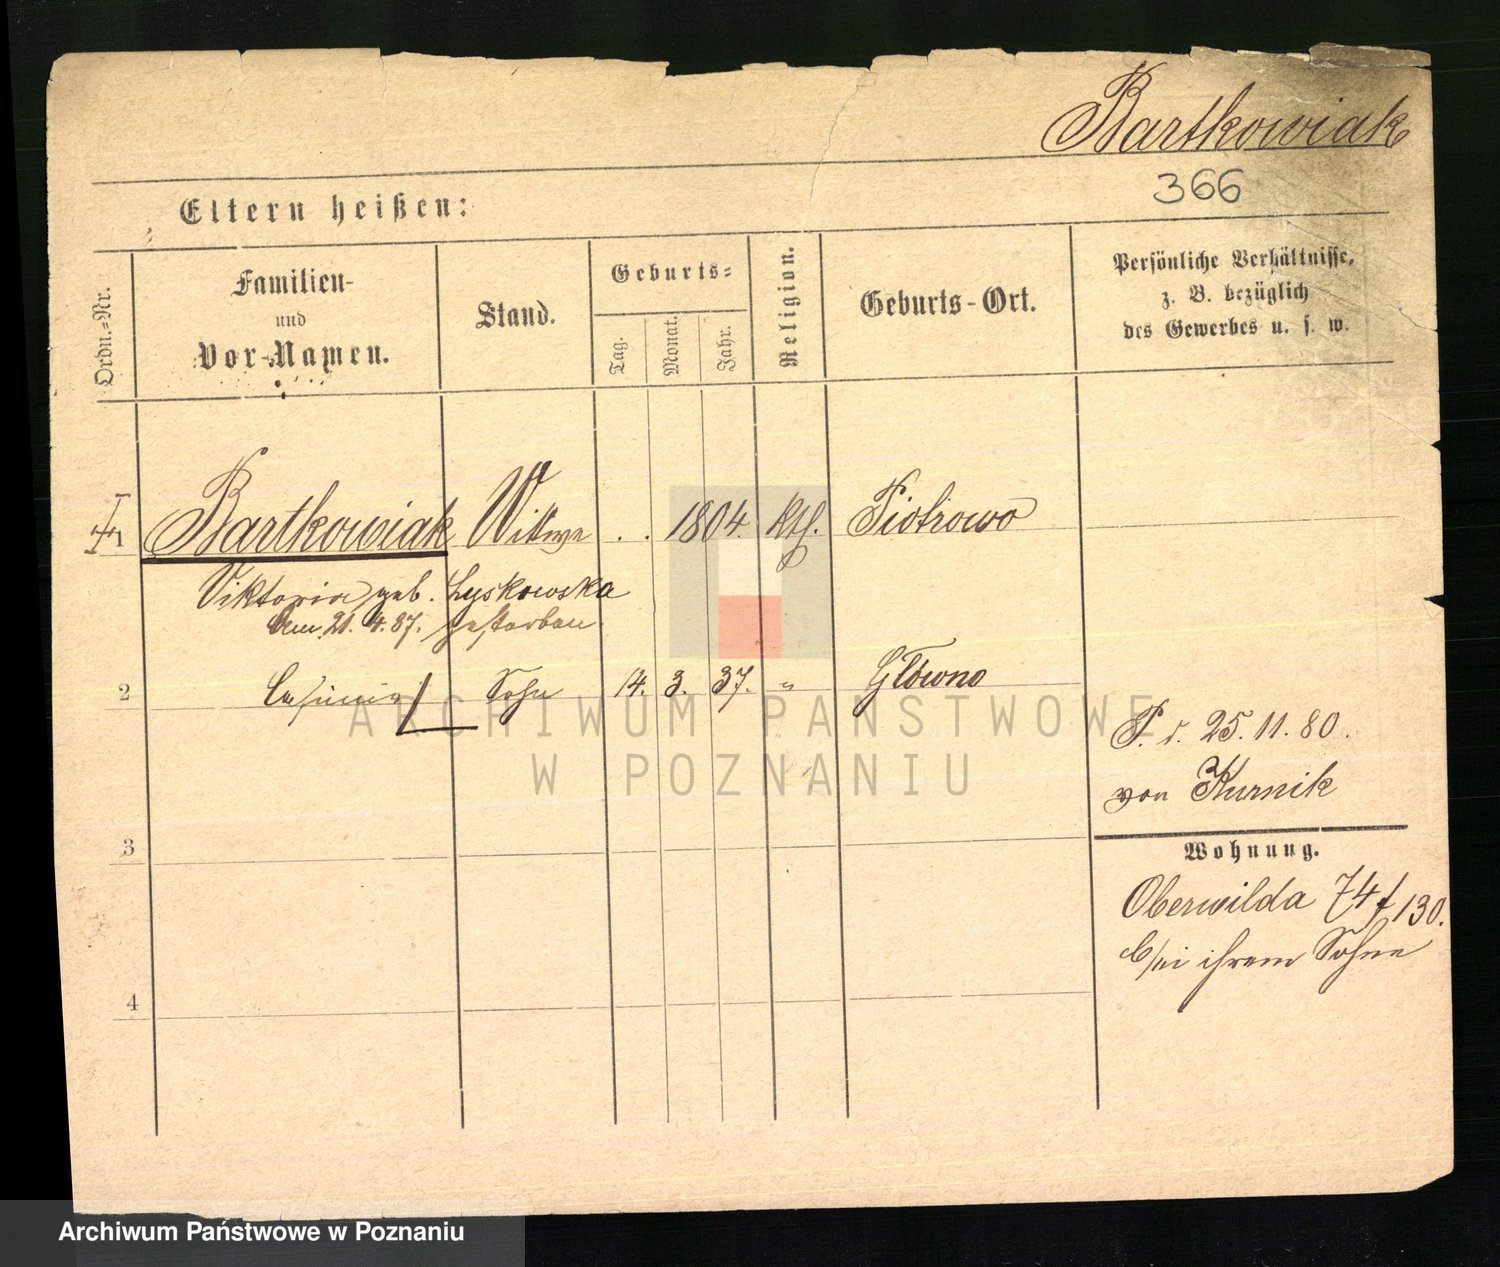 Bartkowiak
366
Eltern heißen:
Ordn.-Nr.
Familien-
und
Vor-Namen.
Stand.
Geburts-
Tag.
Monat.
Jahr.
Religion.
Geburts-Ort.
Persönliche Verhältnisse,
z. B. bezüglich
des Gewerbes u. s. w.
1 Bartkowiak Wittwe . . 1804. Kth. Piotrowo
Viktoria geb. Lyskowska
Am 21. 4. 87. gestorben.
2 Casimir Sohn 14. 3. 37. " Główno
P. d. 25. 11. 80.
von Kurnik
3
Wohnung.
Oberwilda 74/130.
bei ihrem Sohne
4
ARCHIWUM PAŃSTWOWE
W POZNANIU
Archiwum Państwowe w Poznaniu